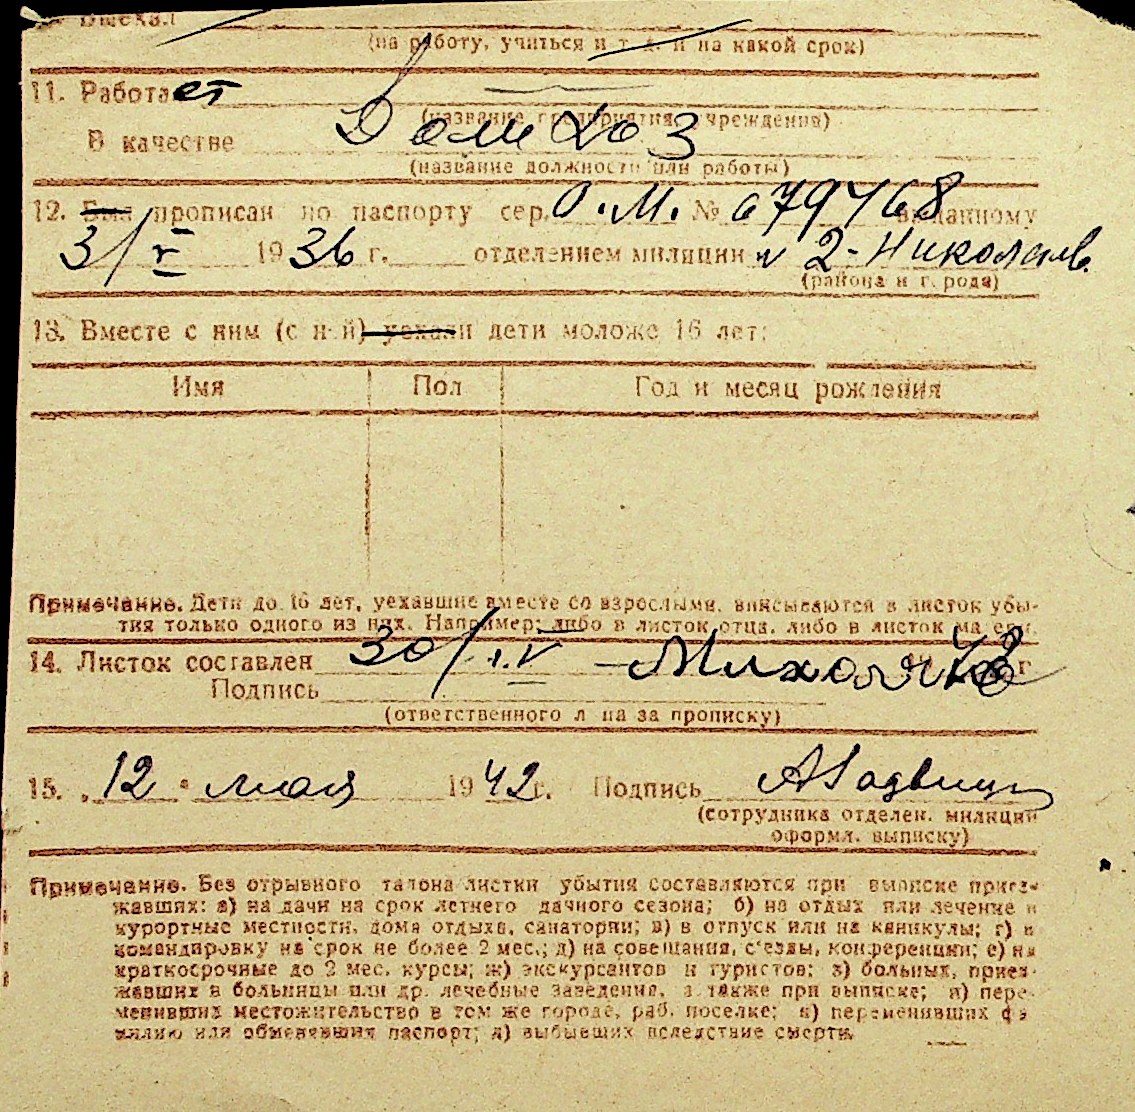 Выехал
(на работу, учиться и т. д. и на какой срок)
11. Работает
(название предприятия, учреждения)
В качестве Домихоз
(название должности или работы)
12. Был прописан по паспорту сер. О.М. № 679768 выданному
3/V 1936 г. отделением милиции 2-Николаев.
(района и города)
13. Вместе с ним (с ней) уехали дети моложе 16 лет:
Имя Пол Год и месяц рождения
Примечание. Дети до 16 лет, уехавшие вместе со взрослыми, вписываются в листок убы-
тия только одного из них. Например: либо в листок отца, либо в листок матери.
14. Листок составлен 30/IV 42 г.
Подпись
(ответственного лица за прописку)
15. „12" мая 1942 г. Подпись
(сотрудника отделен. милиции
оформл. выписку)
Примечание. Без отрывного талона листки убытия составляются при выписке приез-
жавших: а) на дачи на срок летнего дачного сезона; б) на отдых или лечение в
курортные местности, дома отдыха, санатории; в) в отпуск или на каникулы; г) в
командировку на срок не более 2 мес.; д) на совещания, с'езды, конференции; е) на
краткосрочные до 2 мес. курсы; ж) экскурсантов и туристов; з) больных, приез-
жавших в больницы или др. лечебные заведения, а также при выписке; и) пере-
менивших местожительство в том же городе, раб. поселке; к) переменивших фа-
милию или обменявших паспорт; л) выбывших вследствие смерти.